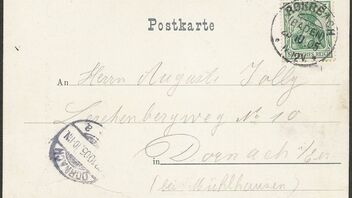 Postkarte
ROHRBACH
BADEN
10 05
An Herrn Auguste Jolly
Lerchenbergweg No 10
in Dornach i/Els
(bei Mühlhausen)
DORNACH